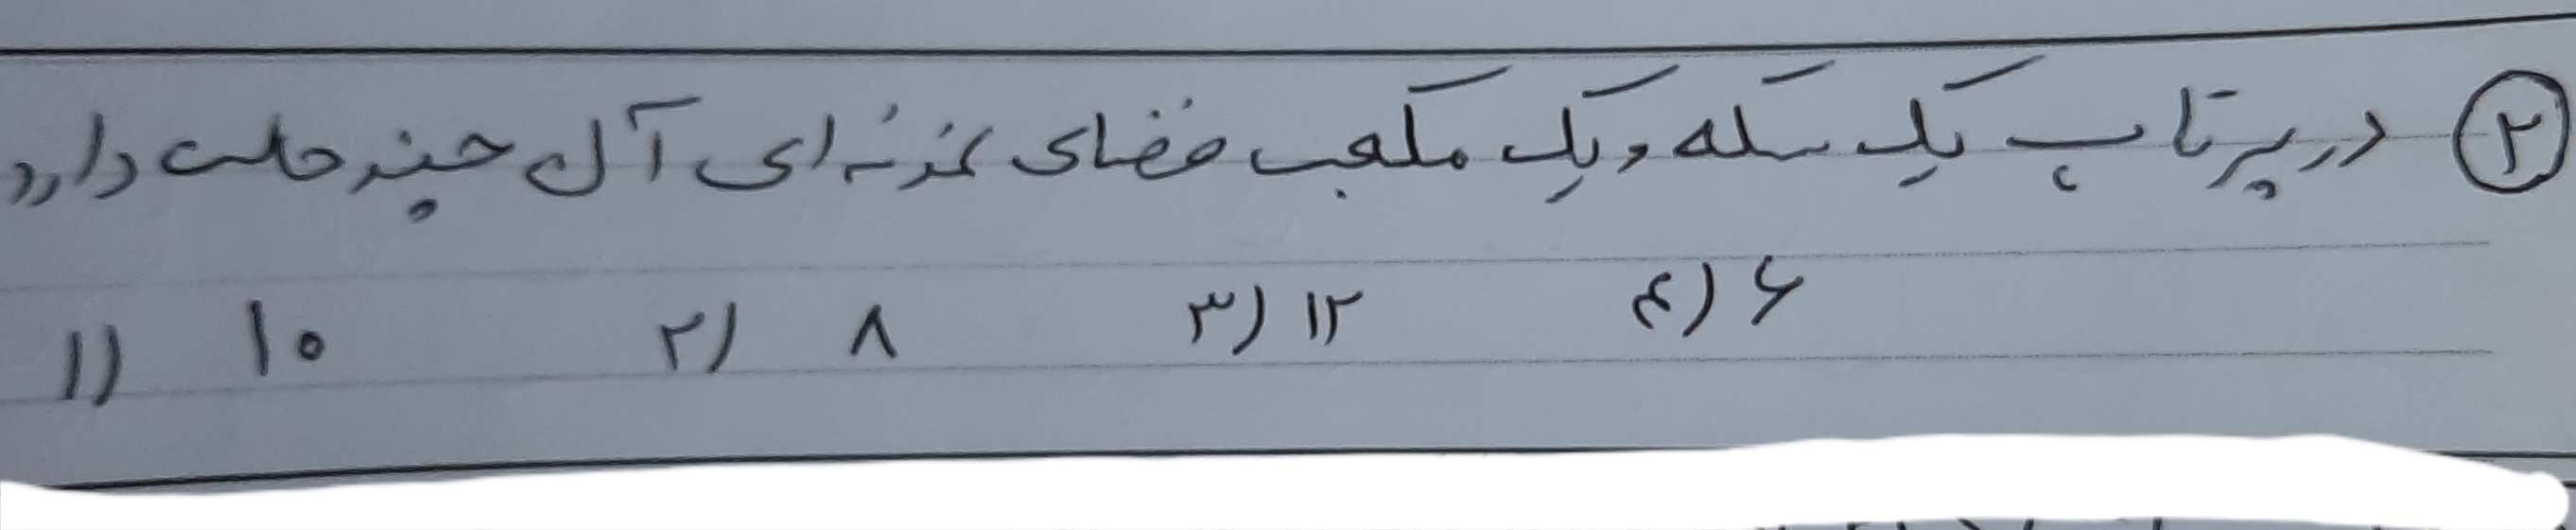 ۲ در پرتاب یک سکه و یک مکعب فضای نمونه ای آن چند حالت دارد
۱) ۱۰ ۲) ۸ ۳) ۱۲ ۴) ۶